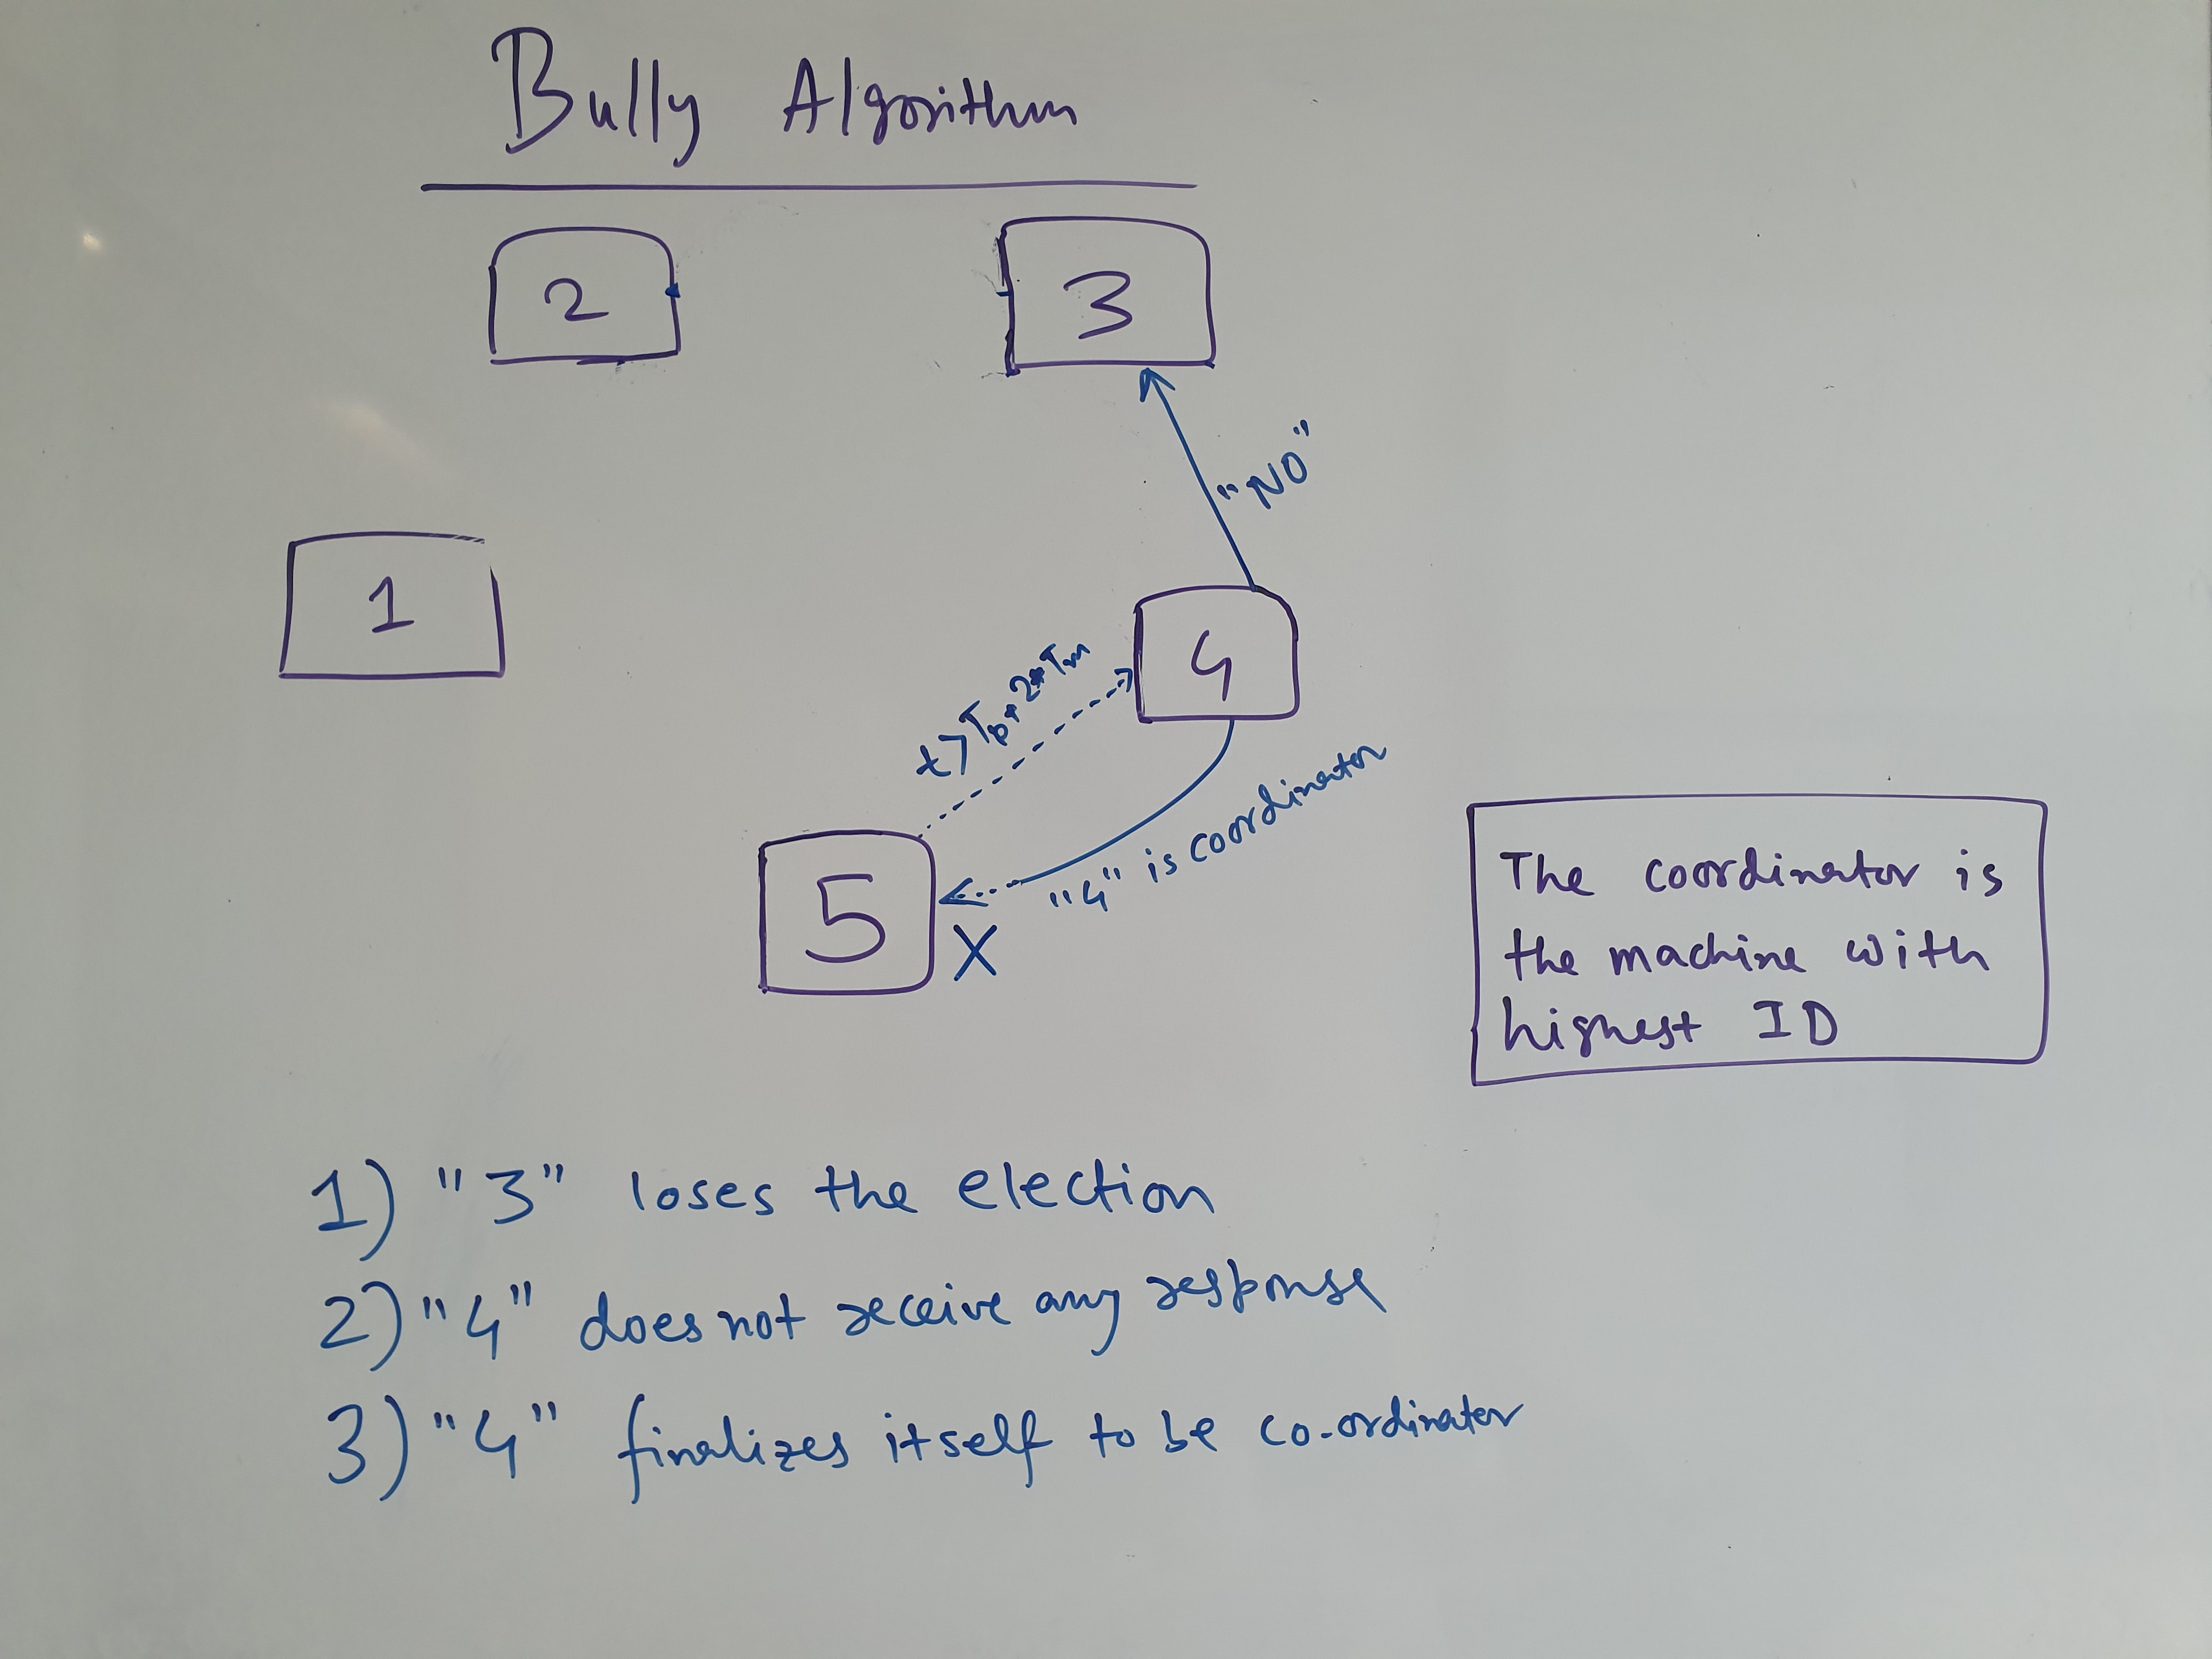 Bully Algorithm
2
3
"NO"
1
4
t>Tp+2*Tm
"4" is coordinator
5
X
The coordinator is
the machine with
highest ID
1) "3" loses the election
2) "4" does not receive any response
3) "4" finalizes itself to be co-ordinator